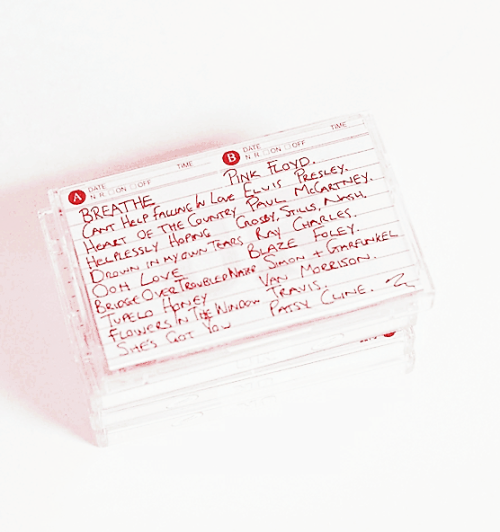 A DATE TIME B DATE TIME
N.R. □ON □OFF N.R. □ON □OFF
BREATHE PINK FLOYD.
CANT HELP FALLING IN LOVE ELVIS PRESLEY.
HEART OF THE COUNTRY PAUL McCARTNEY.
HELPLESSLY HOPING CROSBY, STILLS, NASH.
DROWN IN MY OWN TEARS RAY CHARLES.
OOH LOVE BLAZE FOLEY.
BRIDGE OVER TROUBLED WATER SIMON + GARFUNKEL
TUPELO HONEY VAN MORRISON.
FLOWERS IN THE WINDOW TRAVIS.
SHE'S GOT YOU PATSY CLINE.